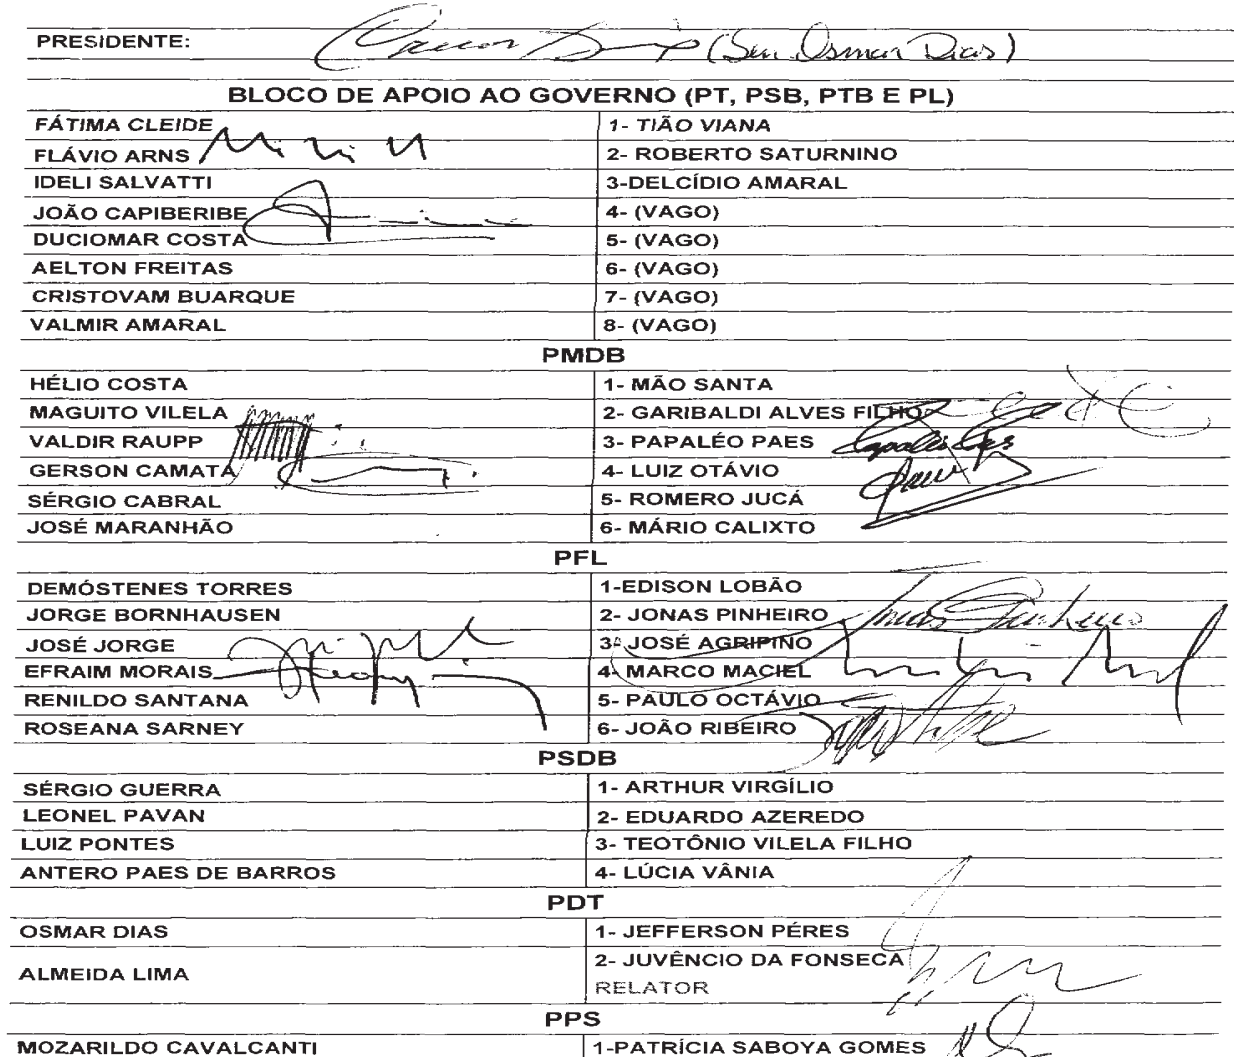 PRESIDENTE: (Sen. Osmar Dias)
BLOCO DE APOIO AO GOVERNO (PT, PSB, PTB E PL)
FÁTIMA CLEIDE 1- TIÃO VIANA
FLÁVIO ARNS 2- ROBERTO SATURNINO
IDELI SALVATTI 3-DELCÍDIO AMARAL
JOÃO CAPIBERIBE 4- (VAGO)
DUCIOMAR COSTA 5- (VAGO)
AELTON FREITAS 6- (VAGO)
CRISTOVAM BUARQUE 7- (VAGO)
VALMIR AMARAL 8- (VAGO)
PMDB
HÉLIO COSTA 1- MÃO SANTA
MAGUITO VILELA 2- GARIBALDI ALVES FILHO
VALDIR RAUPP 3- PAPALÉO PAES Papaléo Paes
GERSON CAMATA 4- LUIZ OTÁVIO
SÉRGIO CABRAL 5- ROMERO JUCÁ
JOSÉ MARANHÃO 6- MÁRIO CALIXTO
PFL
DEMÓSTENES TORRES 1-EDISON LOBÃO
JORGE BORNHAUSEN 2- JONAS PINHEIRO Jonas Pinheiro
JOSÉ JORGE 3- JOSÉ AGRIPINO
EFRAIM MORAIS 4- MARCO MACIEL
RENILDO SANTANA 5- PAULO OCTÁVIO
ROSEANA SARNEY 6- JOÃO RIBEIRO
PSDB
SÉRGIO GUERRA 1- ARTHUR VIRGÍLIO
LEONEL PAVAN 2- EDUARDO AZEREDO
LUIZ PONTES 3- TEOTÔNIO VILELA FILHO
ANTERO PAES DE BARROS 4- LÚCIA VÂNIA
PDT
OSMAR DIAS 1- JEFFERSON PÉRES
ALMEIDA LIMA 2- JUVÊNCIO DA FONSECA
RELATOR
PPS
MOZARILDO CAVALCANTI 1-PATRÍCIA SABOYA GOMES